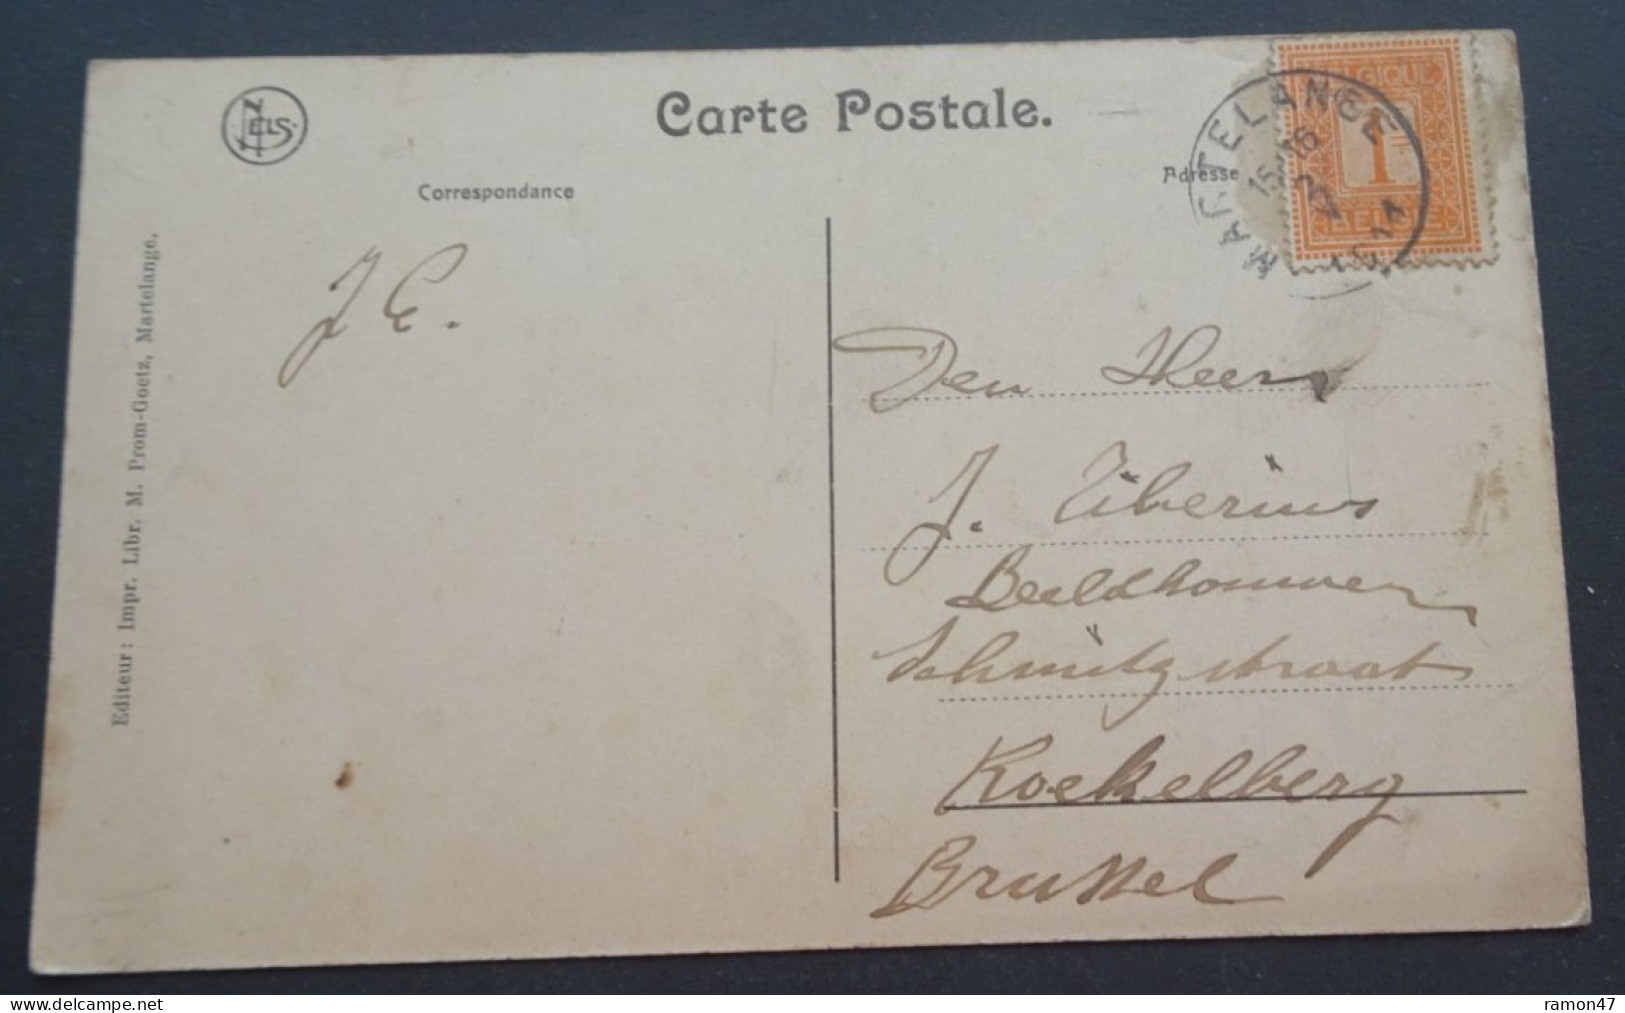 NELS.
Carte Postale.
Correspondance
Adresse
BELGIQUE
1
BELGIE
MARTELANGE
15-16
1914
Editeur: Impr. Libr. M. Prom-Goetz, Martelange.
J E.
Den Heer
J. Tiberius
Beeldhouwer
Schmitzstraat
Koekelberg
Brussel
delcampe.net
ramon47